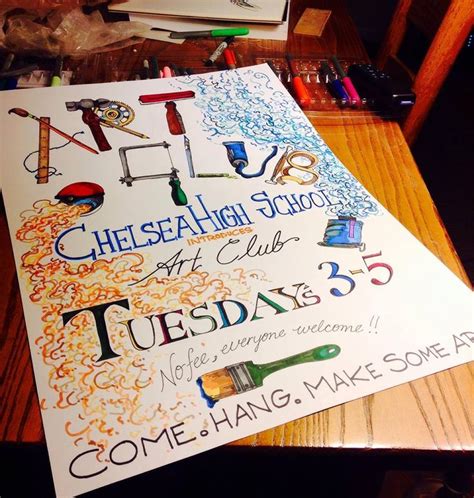 ART
CLUB
CHELSEA HIGH SCHOOL
INTRODUCES
Art Club
TUESDAYS 3-5
No fee, everyone welcome!!
COME. HANG. MAKE SOME AR